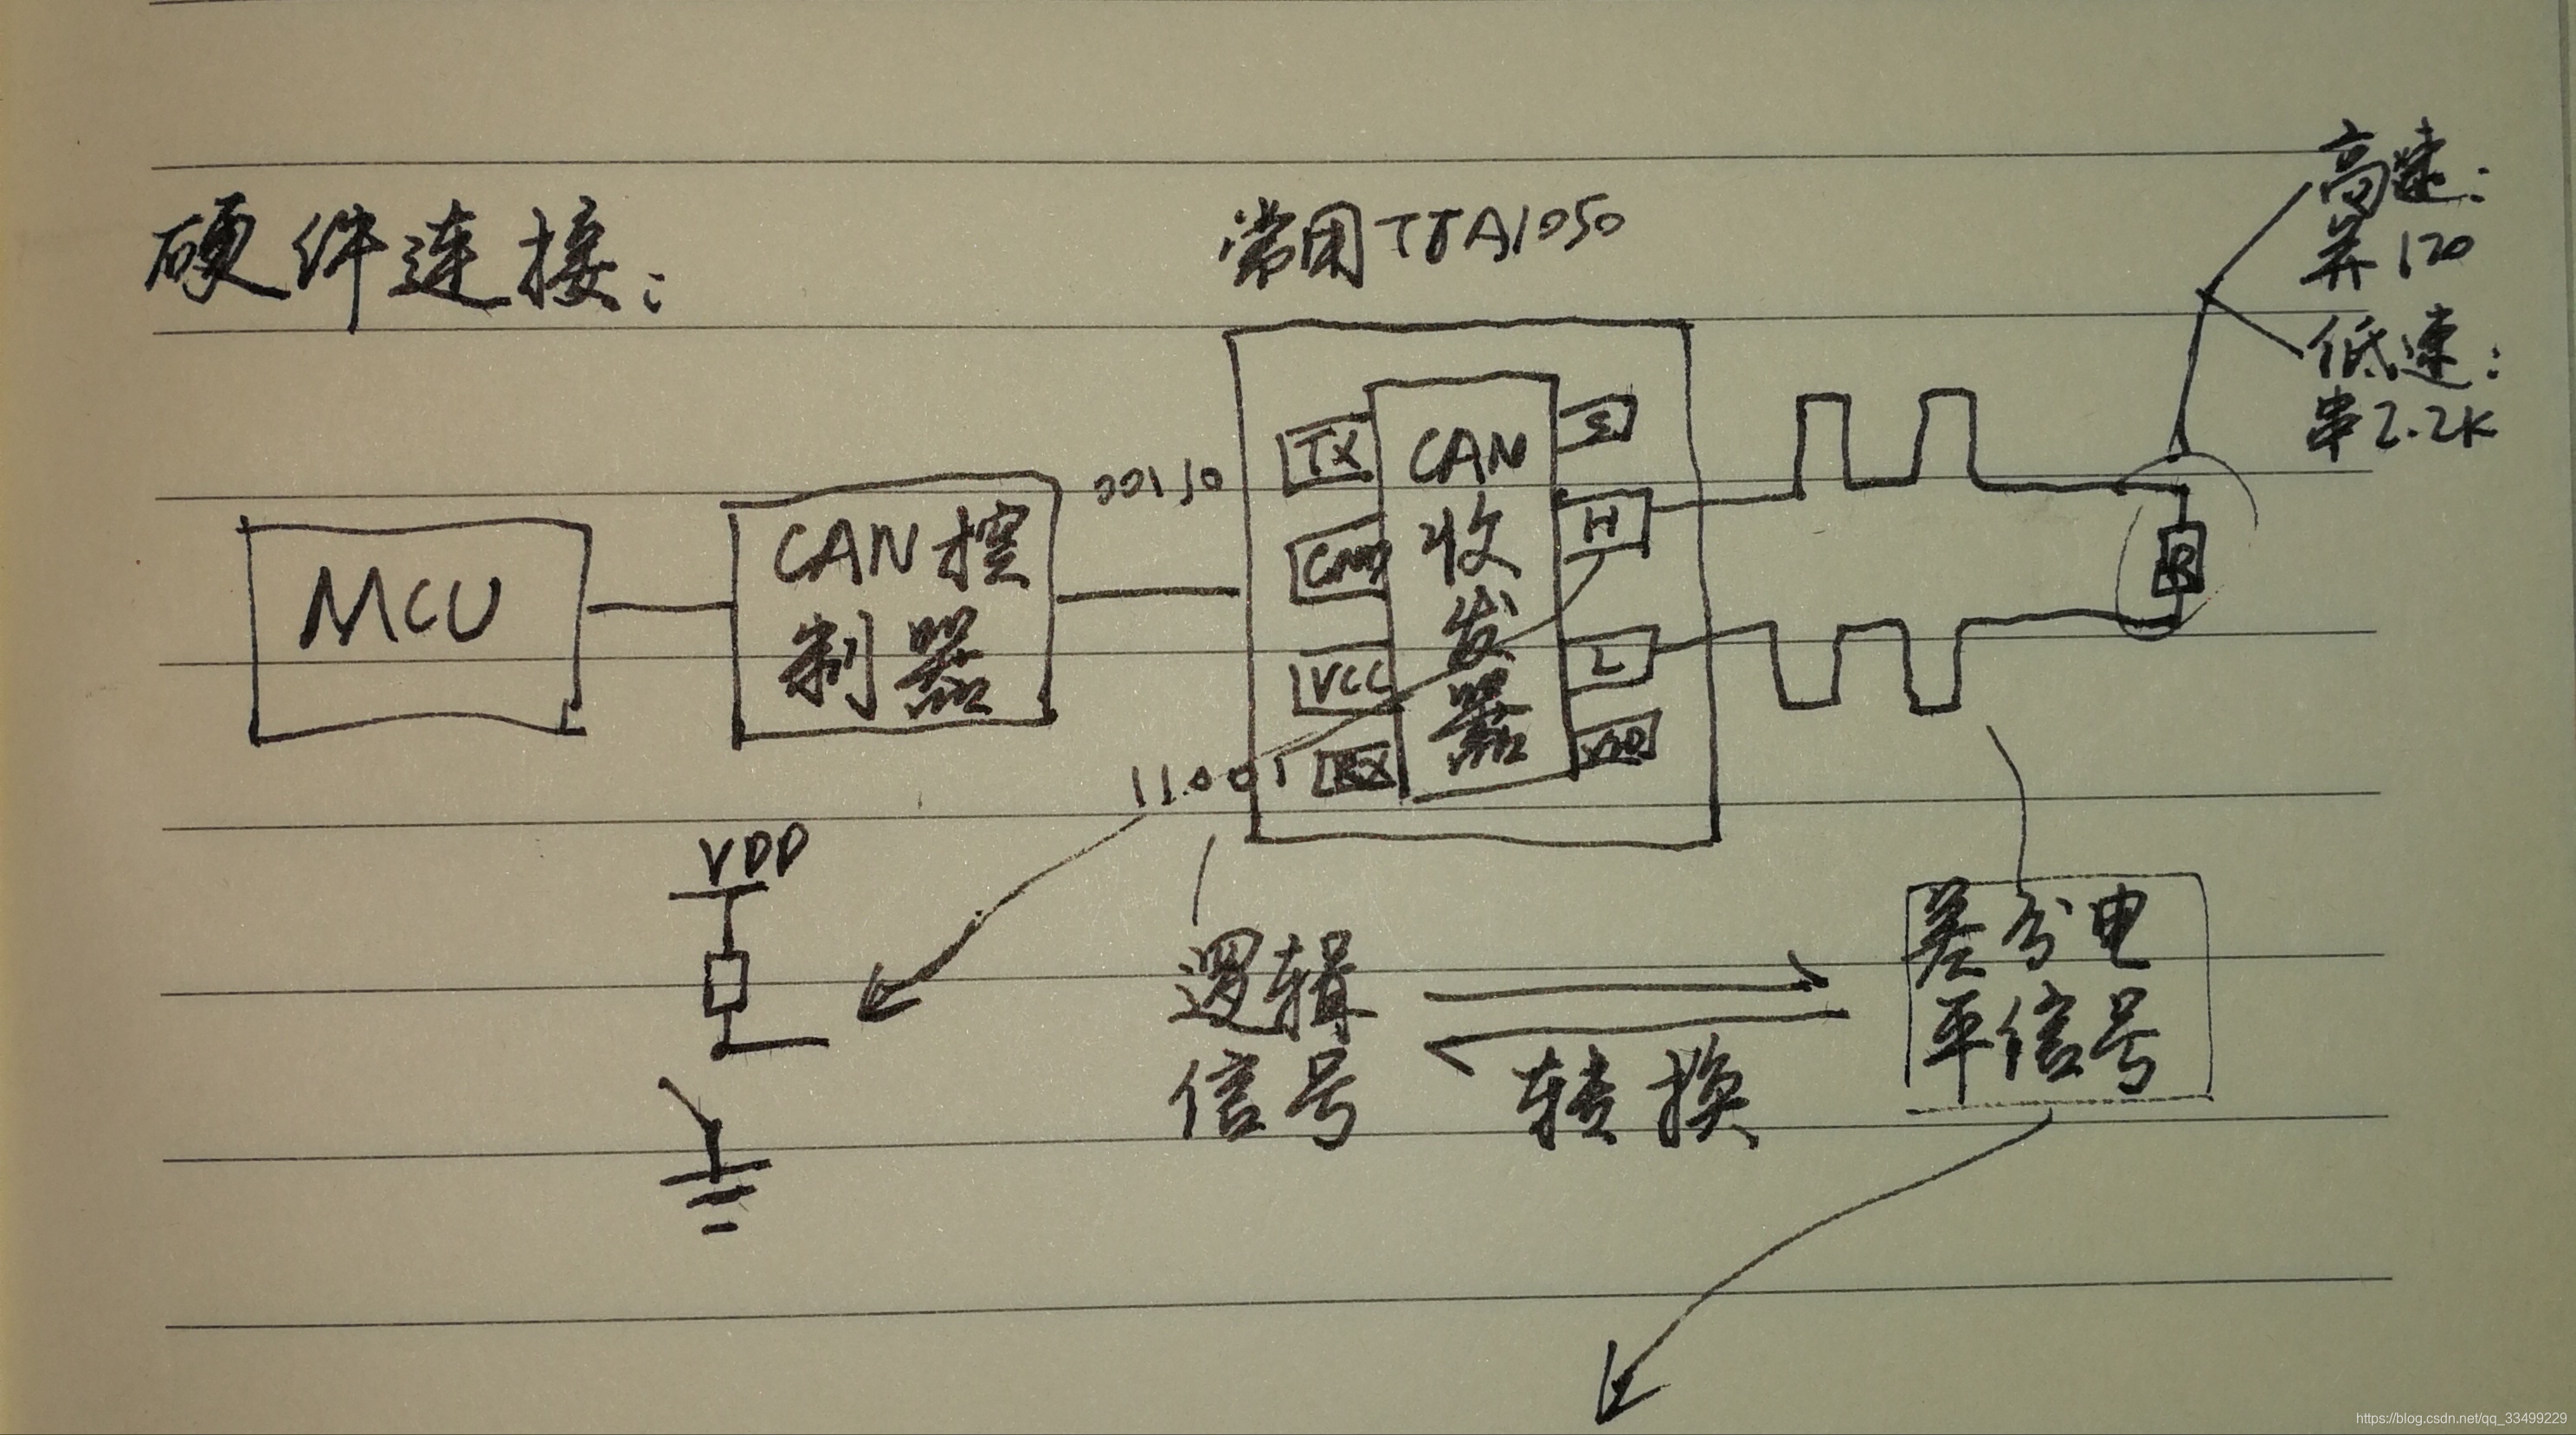 硬件连接：
常用TJA1050
高速：
并120
低速：
串2.2K
MCU
CAN控
制器
00110
11001
TX
GND
VCC
RX
CAN
收
发
器
S
H
L
R
VDD
逻辑
信号
转换
差分电
平信号
https://blog.csdn.net/qq_33499229